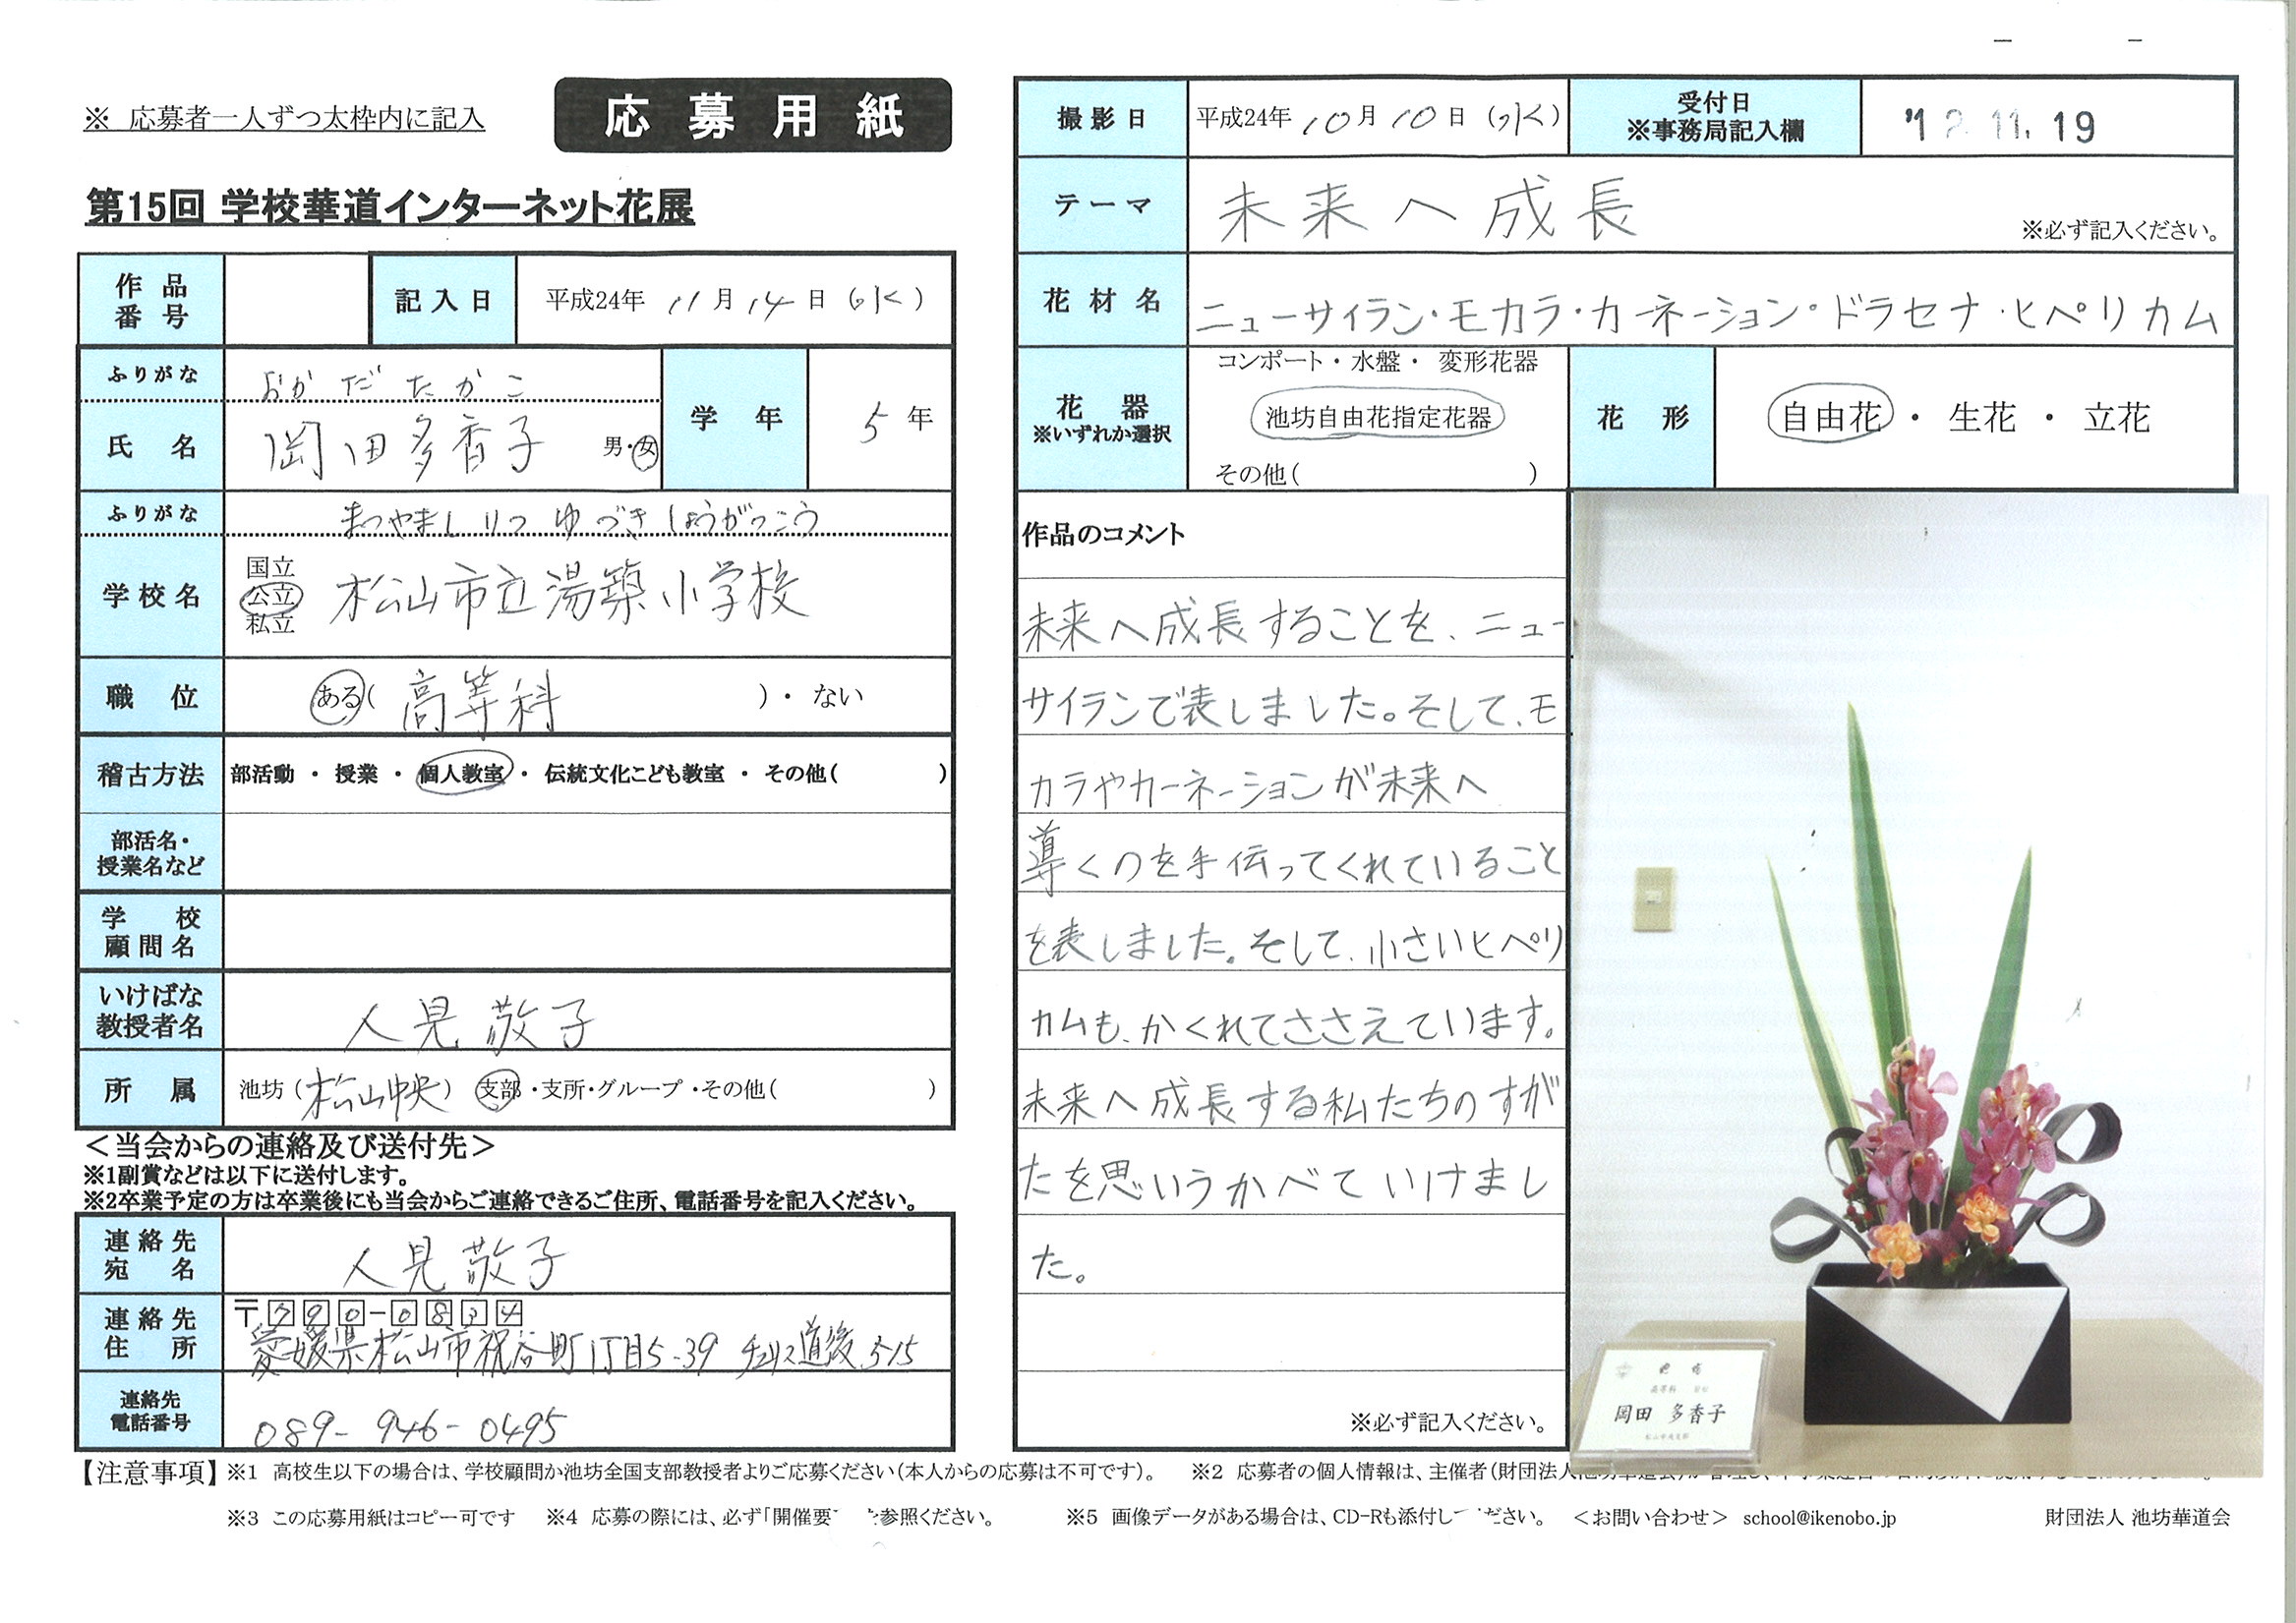 ※ 応募者一人ずつ太枠内に記入
応募用紙
第15回 学校華道インターネット花展
作品番号
記入日 平成24年 11月 14日 (水)
ふりがな おかだ たかこ
氏名 岡田多香子 男・女
学年 5年
ふりがな まつやましりつ ゆづきしょうがっこう
学校名 国立 公立 私立 松山市立湯築小学校
職位 ある( 高等科 )・ ない
稽古方法 部活動 ・ 授業 ・ 個人教室 ・ 伝統文化こども教室 ・ その他( )
部活名・授業名など
学校顧問名
いけばな教授者名 人見 敬子
所属 池坊(松山中央) 支部・支所・グループ・その他( )
＜当会からの連絡及び送付先＞
※1副賞などは以下に送付します。
※2卒業予定の方は卒業後にも当会からご連絡できるご住所、電話番号を記入ください。
連絡先宛名 人見 敬子
連絡先住所 〒790-0834
愛媛県松山市祝谷町1丁目5-39 道後515
連絡先電話番号 089-946-0495
撮影日 平成24年 10月 10日 (水)
受付日 ※事務局記入欄 '12.11.19
テーマ 未来へ成長 ※必ず記入ください。
花材名 ニューサイラン・モカラ・カーネーション・ドラセナ・ヒペリカム
花器 ※いずれか選択
コンポート・水盤・ 変形花器
池坊自由花指定花器
その他( )
花形 自由花 ・ 生花 ・ 立花
作品のコメント
未来へ成長することを、ニュー
サイランで表しました。そして、モ
カラやカーネーションが未来へ
導くのを手伝ってくれていること
を表しました。そして、小さいヒペリ
カムも、かくれてささえています。
未来へ成長する私たちのすが
たを思いうかべていけまし
た。
※必ず記入ください。
高等科
岡田 多香子
松山中央支部
【注意事項】 ※1 高校生以下の場合は、学校顧問か池坊全国支部教授者よりご応募ください(本人からの応募は不可です)。 ※2 応募者の個人情報は、主催者(財団法人
※3 この応募用紙はコピー可です ※4 応募の際には、必ず「開催要 を参照ください。 ※5 画像データがある場合は、CD-Rも添付し ださい。 ＜お問い合わせ＞ school@ikenobo.jp 財団法人 池坊華道会